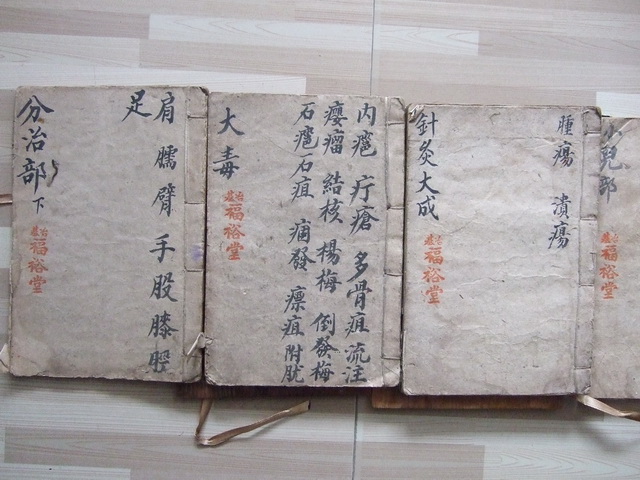 兒部
福裕堂
腫瘍 潰瘍
針灸大成
福裕堂
内癰 疔瘡 多骨疽 流注
癭瘤 結核 楊梅 倒發梅
石癰石疽 發 瘭疽 附肬
大毒
福裕堂
肩臑臂手股膝脛
足
分治部下
福裕堂